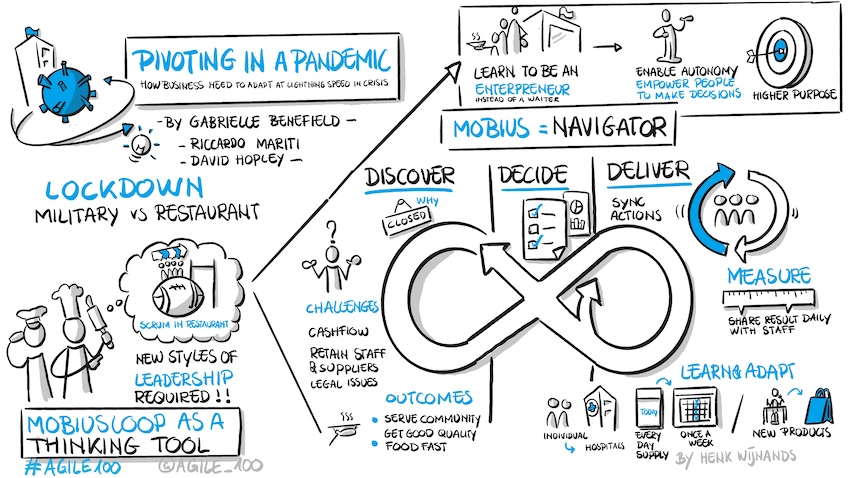 PIVOTING IN A PANDEMIC
HOW BUSINESS NEED TO ADAPT AT LIGHTNING SPEED IN CRISIS
- BY GABRIELLE BENEFIELD -
- RICCARDO MARITI
- DAVID HOPLEY -
LOCKDOWN
MILITARY vs RESTAURANT
SCRUM IN RESTAURANT
NEW STYLES OF
LEADERSHIP
REQUIRED !!
MOBIUSLOOP AS A
THINKING TOOL
#AGILE100 @AGILE_100
LEARN TO BE AN
ENTERPRENEUR
INSTEAD OF A WAITER
ENABLE AUTONOMY
EMPOWER PEOPLE
TO MAKE DECISIONS
HIGHER PURPOSE
MOBIUS = NAVIGATOR
DISCOVER
WHY
CLOSED
?
CHALLENGES
CASHFLOW
RETAIN STAFF
& SUPPLIERS
LEGAL ISSUES
OUTCOMES
• SERVE COMMUNITY
• GET GOOD QUALITY
• FOOD FAST
DECIDE
DELIVER
SYNC
ACTIONS
MEASURE
SHARE RESULT DAILY
WITH STAFF
LEARN & ADAPT
INDIVIDUAL
HOSPITALS
TODAY
EVERY
DAY
SUPPLY
ONCE A
WEEK
/
NEW PRODUCTS
BY HENK WIJNANDS